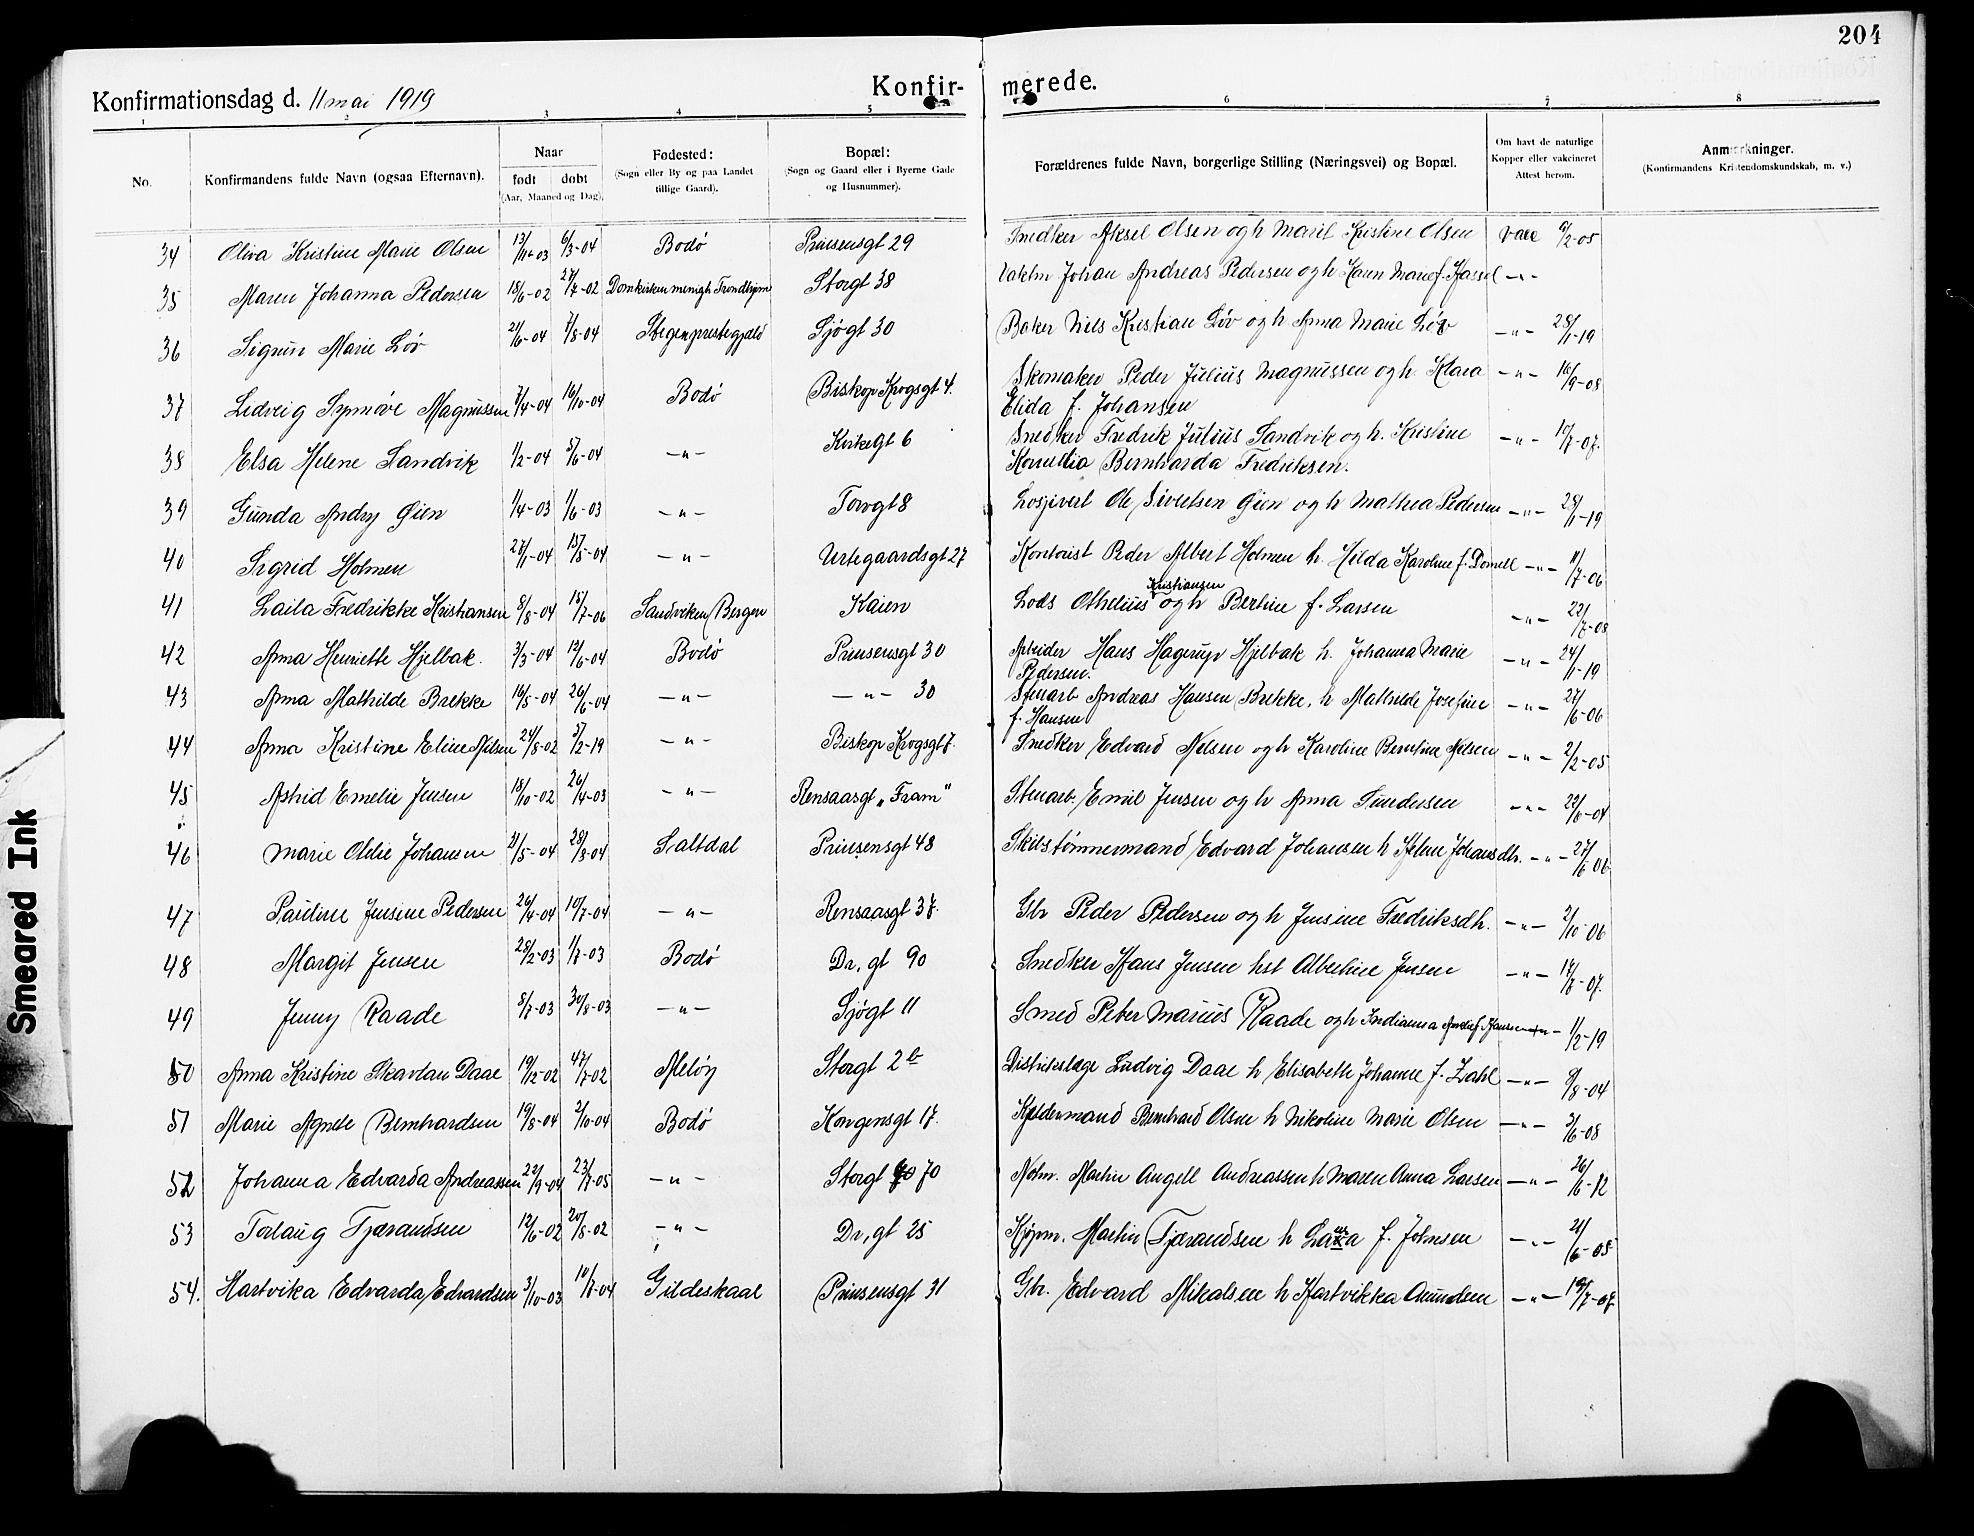 204
Konfirmationsdag d. 11 mai 1919 Konfir- merede.
1 2 3 4 5 6 7 8
No. Konfirmandens fulde Navn (ogsaa Efternavn). Naar født døbt (Aar, Maaned og Dag). Fødested: (Sogn eller By og paa Landet tillige Gaard). Bopæl: (Sogn og Gaard eller i Byerne Gade og Husnummer). Forældrenes fulde Navn, borgerlige Stilling (Næringsvei) og Bopæl. Om havt de naturlige Kopper eller vakcineret Attest herom. Anmærkninger. (Konfirmandens Kristendomskundskab, m. v.)
34 Oliva Kristine Marie Olsen 13/11-03 6/3-04 Bodø Prinsensgt 29 Snedker Aksel Olsen og h Marit Kristine Olsen vacc 9/2-05
35 Maren Johanna Pedersen 18/6-02 27/7-02 Domkirken menigh Trondhjem Storgt 38 Johan Andreas Pedersen og h Karen Marie f. Hassel -"-
36 Sigrun Marie Løv 21/6-04 7/8-04 Steigen prestegjeld Sjøgt 30 Baker Nils Kristian Løv og h Anna Marie Løv -"- 28/1-19
37 Ledveig Synnøve Magnussen 7/4-04 16/10-04 Bodø Biskop Krogsgt 4. Skomaker Peder Julius Magnussen og h. Klara -"- 16/9-08
Elida f. Johansen
38 Elsa Helene Sandvik 1/2-04 5/6-04 -"- Kirkegt 6 Snedker Fredrik Julius Sandvik og h. Kristine -"- 10/7-07.
Kornelia Bernharda Fredriksen.
39 Gunda Andry Gien 1/4-03 1/6-03 -"- Torvgt 8 Losjivert Ole Sivertsen Gien og h Mathea Pedersen -"- 28/1-19
40 Sigrid Holmen 27/1-04 15/5-04 -"- Urtegaardsgt 27 Kontorist Peder Albert Holmen h. Hilda Karoline f. -"- 11/7-06
41 Laila Fredrikke Kristiansen 8/8-04 15/7-06 Sandviken Bergen Kaien Lods Othelius Kristiansen og h Bertine f. Larsen -"- 22/7-08
42 Anna Henriette Hjelbak. 3/3-04 12/6-04 Bodø Prinsensgt 30 Arbeider Hans Hagerup Hjelbak h. Johanna Marie -"- 24/1-19
Pedersen.
43 Anna Mathilde Brekke 16/5-04 26/6-04 -"- -"- 30 Stenarb Andreas Hansen Brekke, h Mathilde Josefine -"- 27/6-06
f. Hansen
44 Anna Kristine Eline Nilsen 24/8-02 5/2-19 -"- Biskop Krogsgt 7. Snedker Edvard Nelsen og h Karoline Berntine Nelsen -"- 2/2-05
45 Astrid Emelie Jensen 18/10-02 26/4-03 -"- Rensaasgt „Fram" Stenarb. Emil Jensen og h Anna Gundersen -"- 22/6-04
46 Marie Otelie Johansen 21/5-04 28/8-04 Saltdal Prinsensgt 48 Skibstømmermand Edvard Johansen h Helene Johansdt. -"- 27/6 06
47 Pauline Jensine Pedersen 26/4-04 10/7-04 -"- Rensaasgt 37. Gbr Peder Pedersen og h Jensine Fredriksdt. -"- 2/10-06
48 Margit Jensen 28/2-03 1/7-03 Bodø Dr. gt 90 Snedker Hans Jensen hst Albertine Jensen -"- 14/7-07.
49 Jenny Raade 8/7-03 30/8-03 -"- Sjøgt 11 Smed Peter Marius Raade og h Indianna Amalie f. Hansen -"- 11/2-19
50 Anna Kristine Skavlan Daae 19/12-02 47/7-02 Meløy Storgt 2b Distriktslæge Ludvig Daae h Elisabeth Johanne f. Zahl -"- 9/8-04
51 Marie Agnete Bernhardsen 19/8-04 2/10-04 Bodø Kongensgt 17. Kjeldermand Bernhard Olsen h Nikoline Marie Olsen -"- 3/6-08
52 Johanna Edvarda Andreassen 22/9-04 23/7-05 -"- Storgt 70 Martin Angell Andreassen h Maren Anna Larsen -"- 26/6-12
53 Torlaug Tjærandsen 12/6-02 20/8-02 -"- Dr. gt 25 Kjøpm. Martin Tjærandsen h Laura f. Johnsen -"- 21/6-05
54. Hartvika Edvarda Edvardsen 3/10-03 10/7-04 Gildeskaal Prinsensgt 31 Gbr. Edvard Mikalsen h Hartvikka Amundsen -"- 19/7-07
Smeared Ink